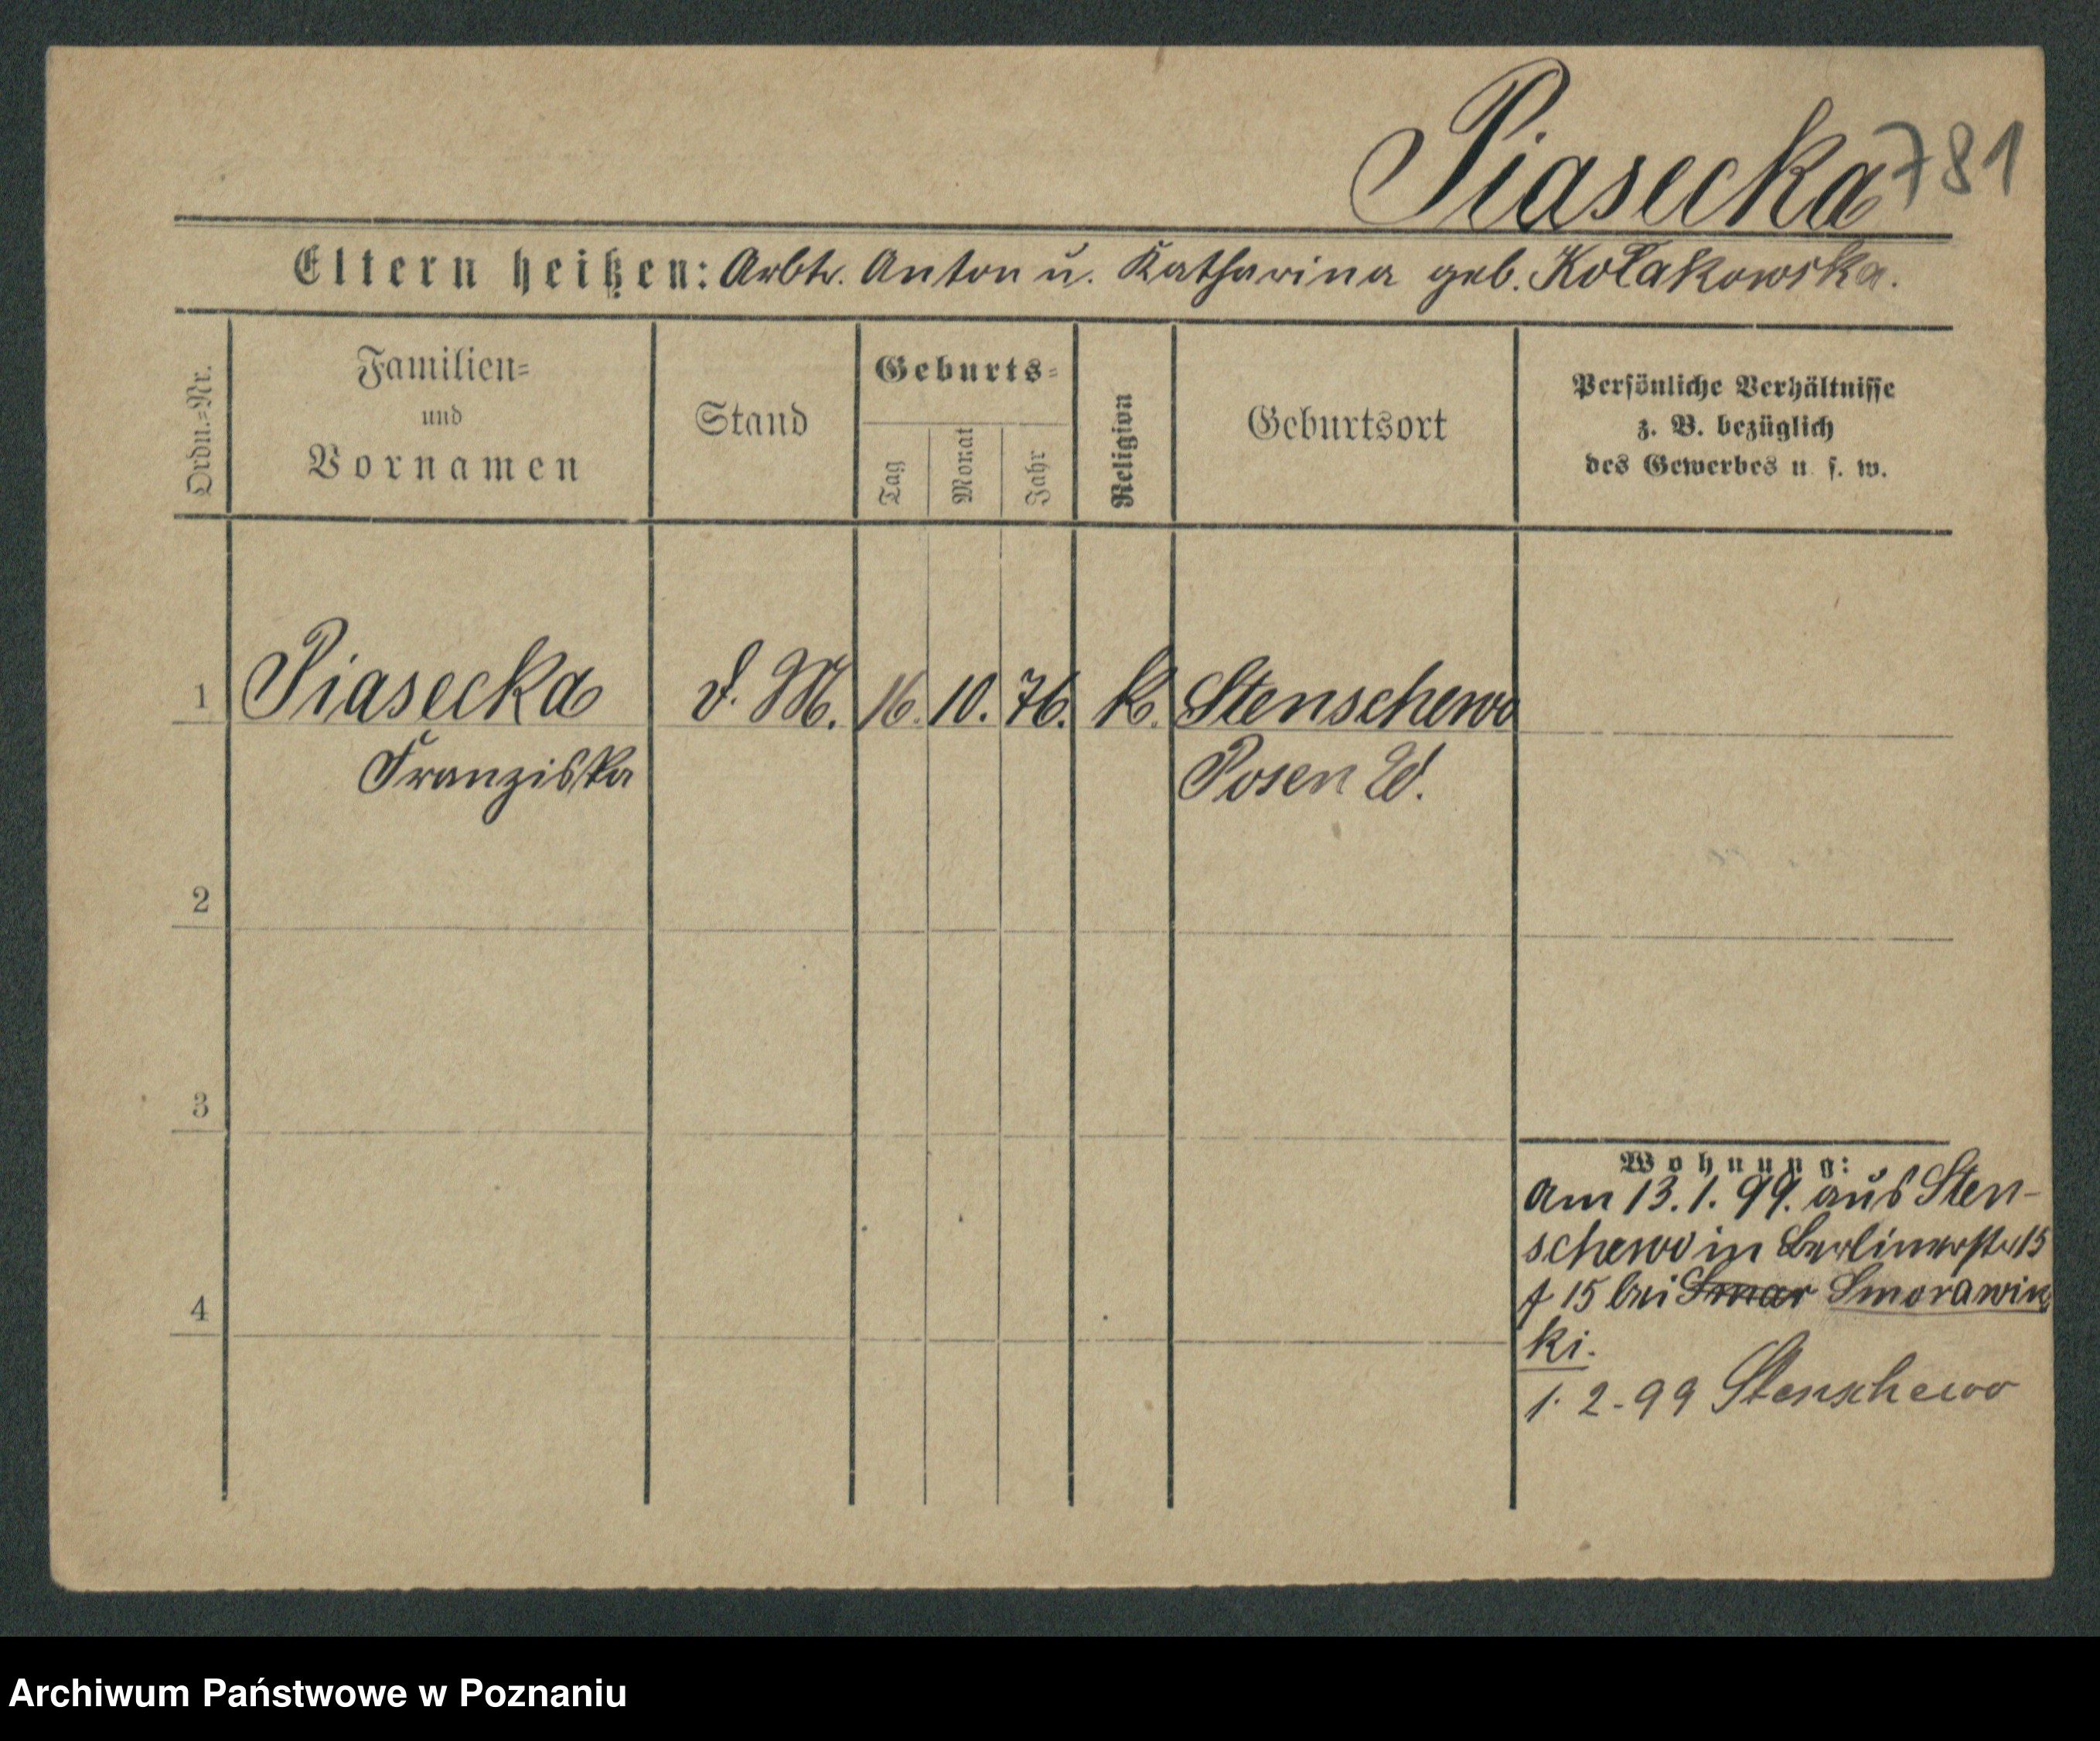 Piasecka 781
Eltern heißen: Arbtr. Anton u. Katharina geb. Kołakowska.
Ordn.=Nr.
Familien=
und
Vornamen
Stand
Geburts=
Tag
Monat
Jahr
Religion
Geburtsort
Persönliche Verhältnisse
z. B. bezüglich
des Gewerbes u. s. w.
1 Piasecka d. M. 16. 10. 76. k. Stenschewo
Franziska Posen W.
2
3
4
Wohnung:
am 13.1.99. aus Sten-
schewo in Berlinerstr 15
15 bei Smar Smorawin
ki.
1. 2. 99 Stenschewo
Archiwum Państwowe w Poznaniu